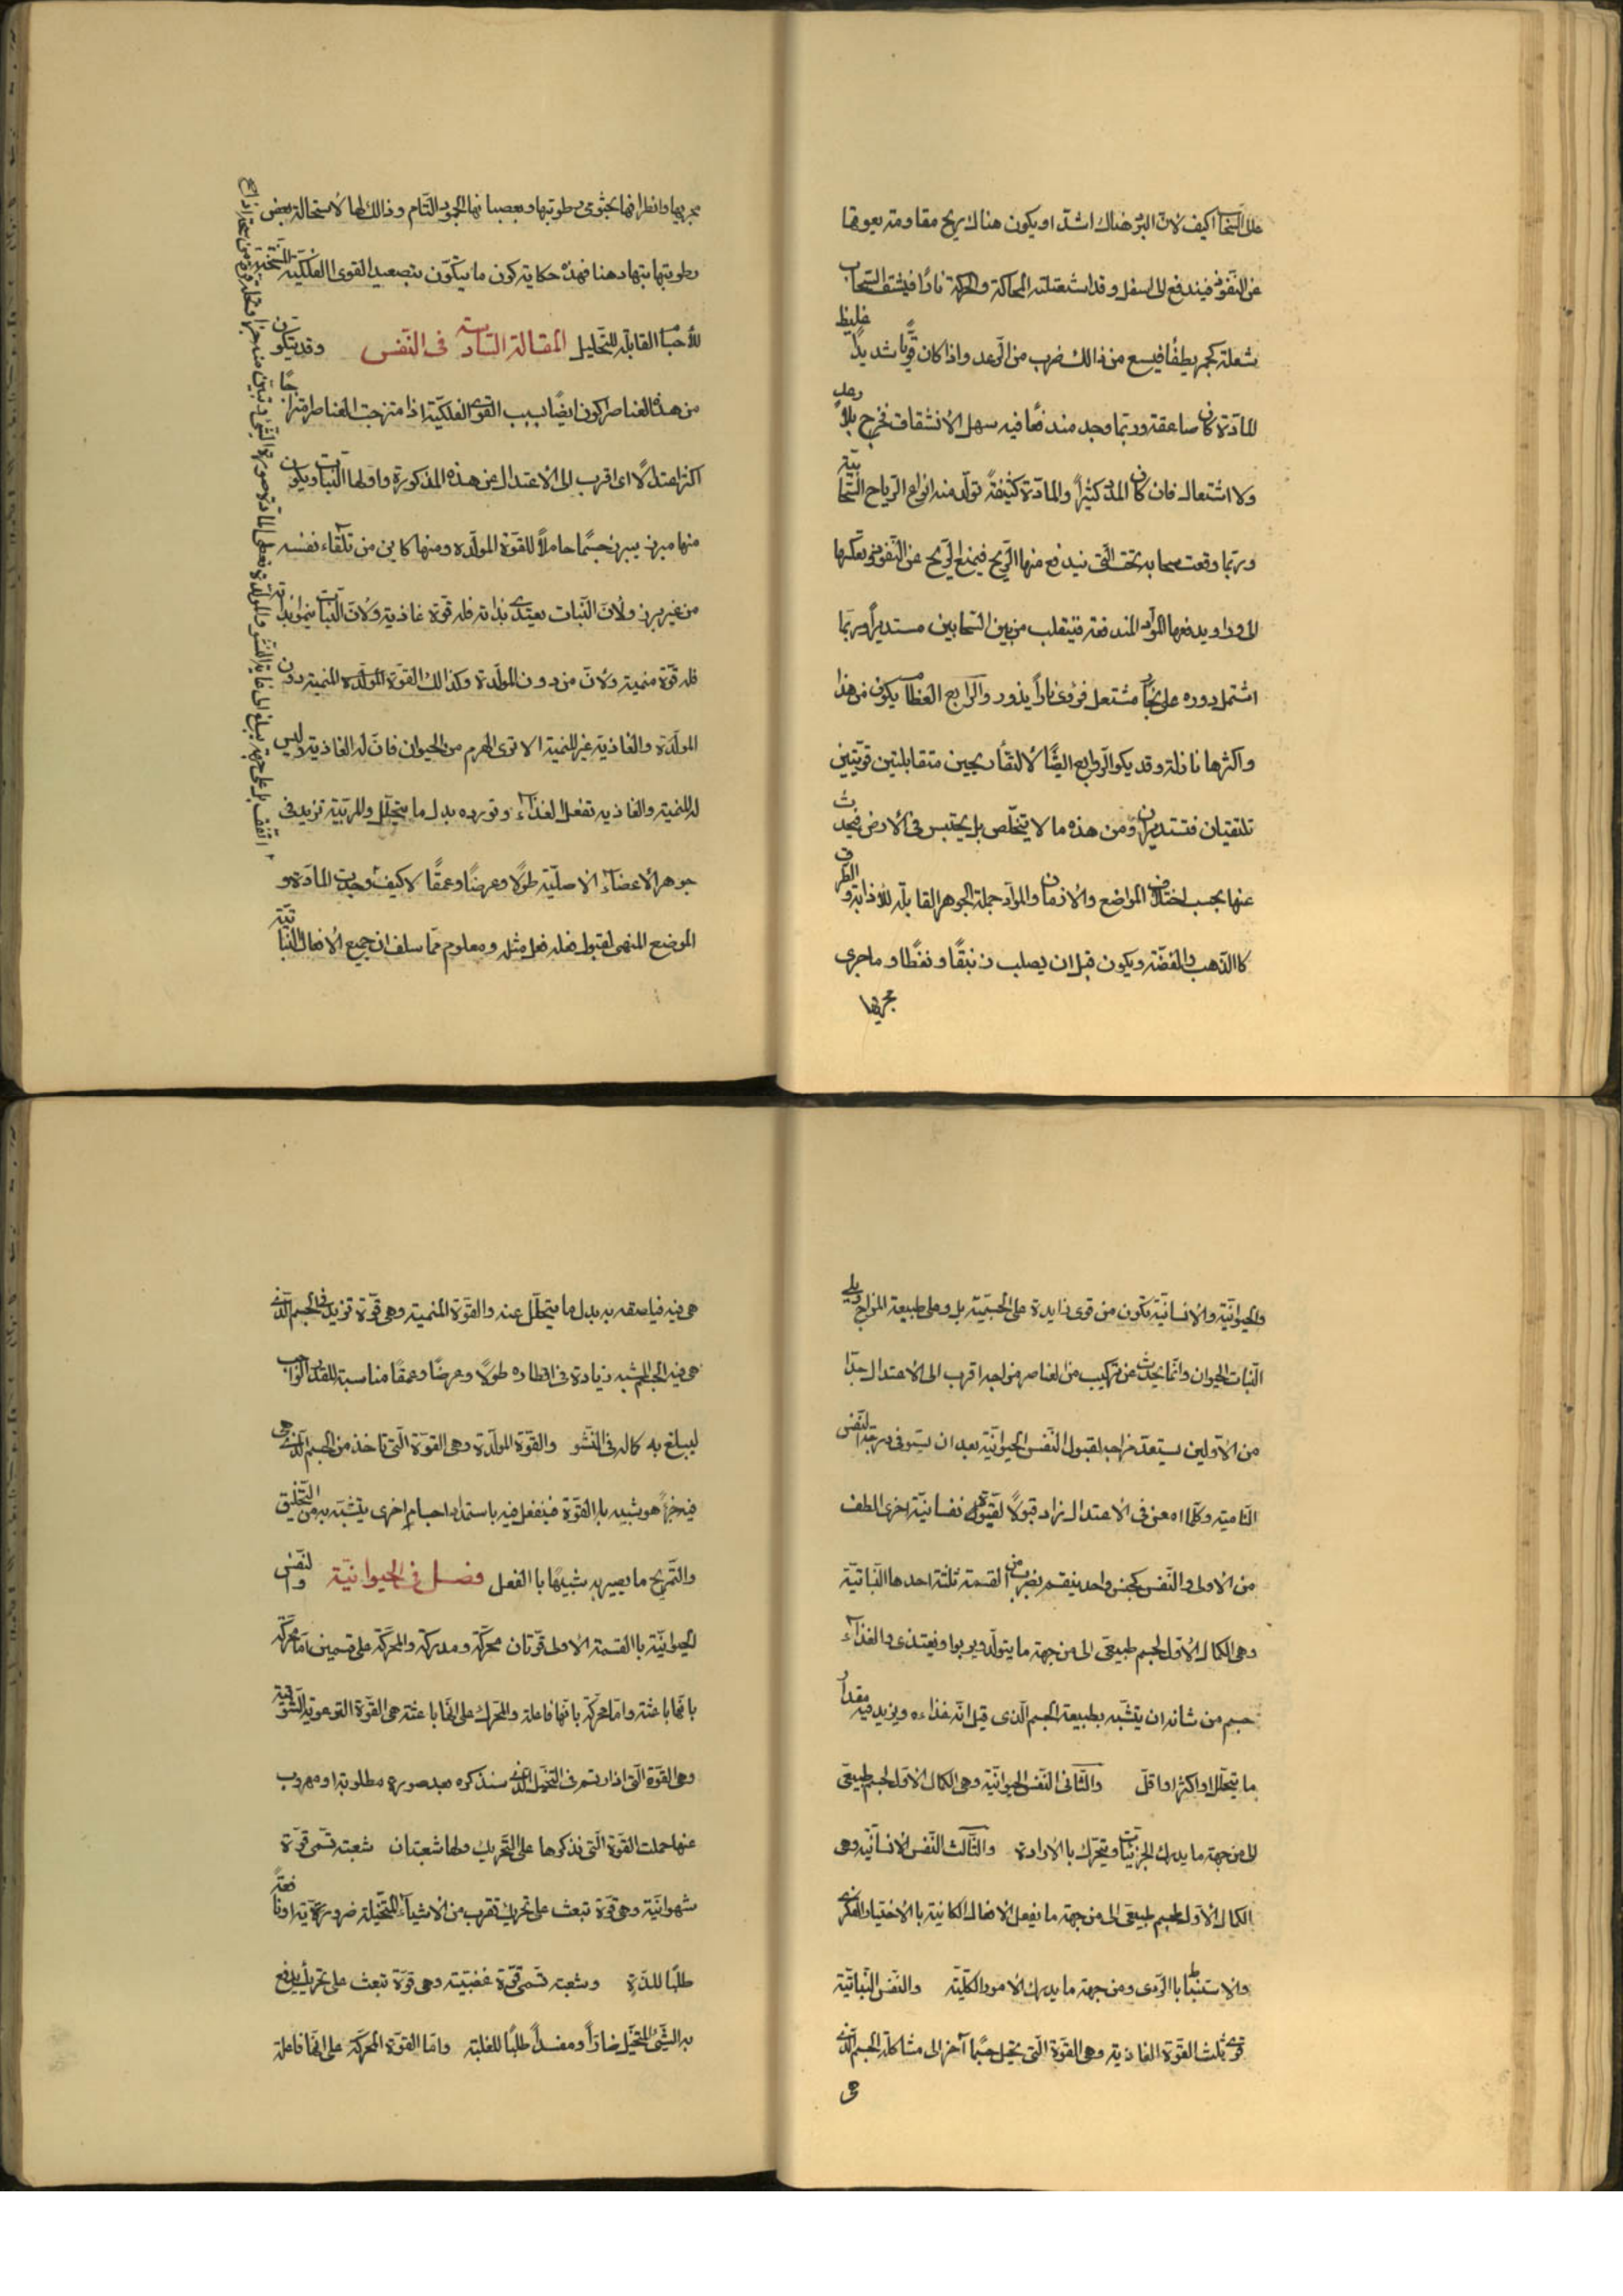 على السحاب كيف لانّ البرد هناك اشدّ او يكون هناك ريح مقاومة يعوقها
عن النّفوذ فيندفع الى اسفل وقد اشتعلته المحاكة والحركة نارًا فيشتف السّحاب
شعلة كجمر يطفأ فيسمع من ذالك ضرب من الرّعد واذا كان قويًّا شديدًا غليظ
المادّة كان صاعقة وربّما وجد مندفعًا فيه سهل الأنشقاق فخرج بلا رعد
ولا اشتعال فان كان المادّة كثيرًا والمادّة كثيفةً تولّد منه انواع الرياح السّحابيّة
وربّما وقعت سحابة تحت الّتى يندفع منها الرّيح فيمنع الرّيح عن النّفوذ ويعكسها
الى ورا ويدفعها الموادّ المندفعة فينقلب من بين السّحابين مستديرًا وربّما
اشتمل دوره على بخار مشتعل فرؤى نارًا يدور والزوابع العظام يكون من هذا
واكثرها نازلة وقد يكون الزّوابع ايضًا لالتقاء ريحين متقابلتين قويّتين
تلتقيان فتستديران ومن هذه ما لا يتخلّص بل يحتبس فى الأرض فيحدث
عنها بحسب اختلاف المواضع والازمان والموادّ جملة الجوهر القابلة للأذابة والطرق
كالذّهب والفضّة ويكون قبل ان يصلب زئبقًا ونفطًا وما جرى
مجريها
مجريها وانطراقها بحثومى رطوبتها وبعصيانها الجمود التّام وذالك لها لاستحالة بعض
رطوبتها بتها دهنا فهذه حكاية كون ما يتكوّن بتصعيد القوى الفلكيّة المتخيّة
للأجسام القابلة للتّحليل المقالة السّادسة فى النّفس وقد يتكون
من هذه العناصر اكون ايضًا بسبب القوى الفلكيّة اذا متزجت العناصر امتزاجًا
اكثر اعتدالًا اى اقرب الى الاعتدال عن هذه المذكورة واولها النّبات ويكون
منها مبزر يبرز جسمًا حاملًا للقوّة المولّدة ومنها كاين من تلقاء نفسه
من غير برز ولأنّ النّبات يغتذى بذاته فله قوّة غاذية ولأنّ النّبات ينمو بذاته
فله قوّة منمية ولانّ من دون المولّدة وكذالك القوّة المولّدة المنمية دون
المولّدة والغاذية غير المنمية الا ترى الهرم من الحيوان فانّ له الغاذية وليس
له المنمية والغاذية تفعل الغذاء وتورده بدل ما يتحلّل والمربّية تزيد فى
جوهر الأعضاء الاصليّة طولًا وعرضًا وعمقًا لا كيف وجدت المادة و
الموضع المنهى لقبول فعله فعل مثله ومعلوم ممّا سلف ان جميع الأفعال النّباتيّة
والحيوانيّة والأنسانيّة يكون من قوى زايدة على الجسميّة بل وعلى طبيعة المزاج ويلى
النّبات الحيوان وانّما يحدث عن تركيب من العناصر مزاجه اقرب الى الأعتدال جدّا
من الاوّلين يستعدّ مزاجه لقبول النّفس الحيوانيّة بعد ان يستوفى درجة النّفس
النّامية وكلّما امعن فى الاعتدال زاد قبولًا لقبول قوى نفسانيّة اخرى الطف
من الاولى والنّفس كجنس واحد ينقسم بضرب من القسمة ثلثة احدها النّباتيّة
وهى الكمال الأوّل لجسم طبيعىّ الى من جهة ما يتولّد ويربوا ويغتذى والغذاء
جسم من شانه ان يتشبّه بطبيعة الجسم الذى قيل انّه غذاءه ويزيد فيه مقدار
ما يتحلّل او اكثر او اقلّ والثّانى النّفس الحيوانيّة وهى الكمال الاوّل لجسم طبيعىّ
الى من جهة ما يدرك الجزئيّات ويتحرّك بالأرادة والثّالث النّفس الانسانيّة وهى
الكمال الأوّل لجسم طبيعىّ الى من جهة ما يفعل الافعال الكاينة بالأختيار الفكرى
والاستنباط بالرّوى ومن جهة ما يدرك الأمور الكلّيّة والنّفس النّباتيّة
قوى ثلث القوّة الغاذية وهى القوّة الّتى تحيل جسمًا آخر الى مشاكلة الجسم الّذى
هى
هى فيه فيلصقه به بدل ما يتحلّل عنه والقوّة المنمية وهى قوّة تزيد فى الجسم الّذى
هى فيه الجسم المتشبّه زيادة فى اقطاره طولًا وعرضًا وعمقًا مناسبة للقدر الواجب
ليبلغ به كماله فى النّشو والقوّة المولّدة وهى القوّة الّتى تاخذ من الجسم الّذى هى
فيه جزءًا هو شبيه باالقوّة فينفعل فيه باستمداد اجسام اخرى يتشبّه به من التّخليق
والتّمزيج ما يصير به شبيهًا باالفعل فصل فى الحيوانيّة والنّفس
الحيوانيّة باالقسمة الأولى قوّتان محرّكة ومدركة والمحرّكة على قسمين امّا محرّكة
بانّها باعثة وامّا محرّكة بانّها فاعلة والمحرّك على انّها باعثة هى القوّة النزوعيّة الشّوقيّة
وهى القوّة الّتى اذا ارتسم فى التّخيّل الّذى سنذكره بعد صورة مطلوبة او مهروب
عنها حملت القوّة الّتى نذكرها على التّحريك ولها شعبتان شعبة تسمّى قوّة
شهوانيّة وهى قوّة تبعث على تحريك تقرب من الأشياء المتخيّلة ضروريّة او نافعةً
طلبًا للذّة وشعبة تسمّى قوّة غضبيّة وهى قوّة تبعث على تحريك يدفع
به الشّىء المتخيّل ضارًّا ومفسدًا طلبًا للغلبة وامّا القوّة المحرّكة على انّها فاعلة